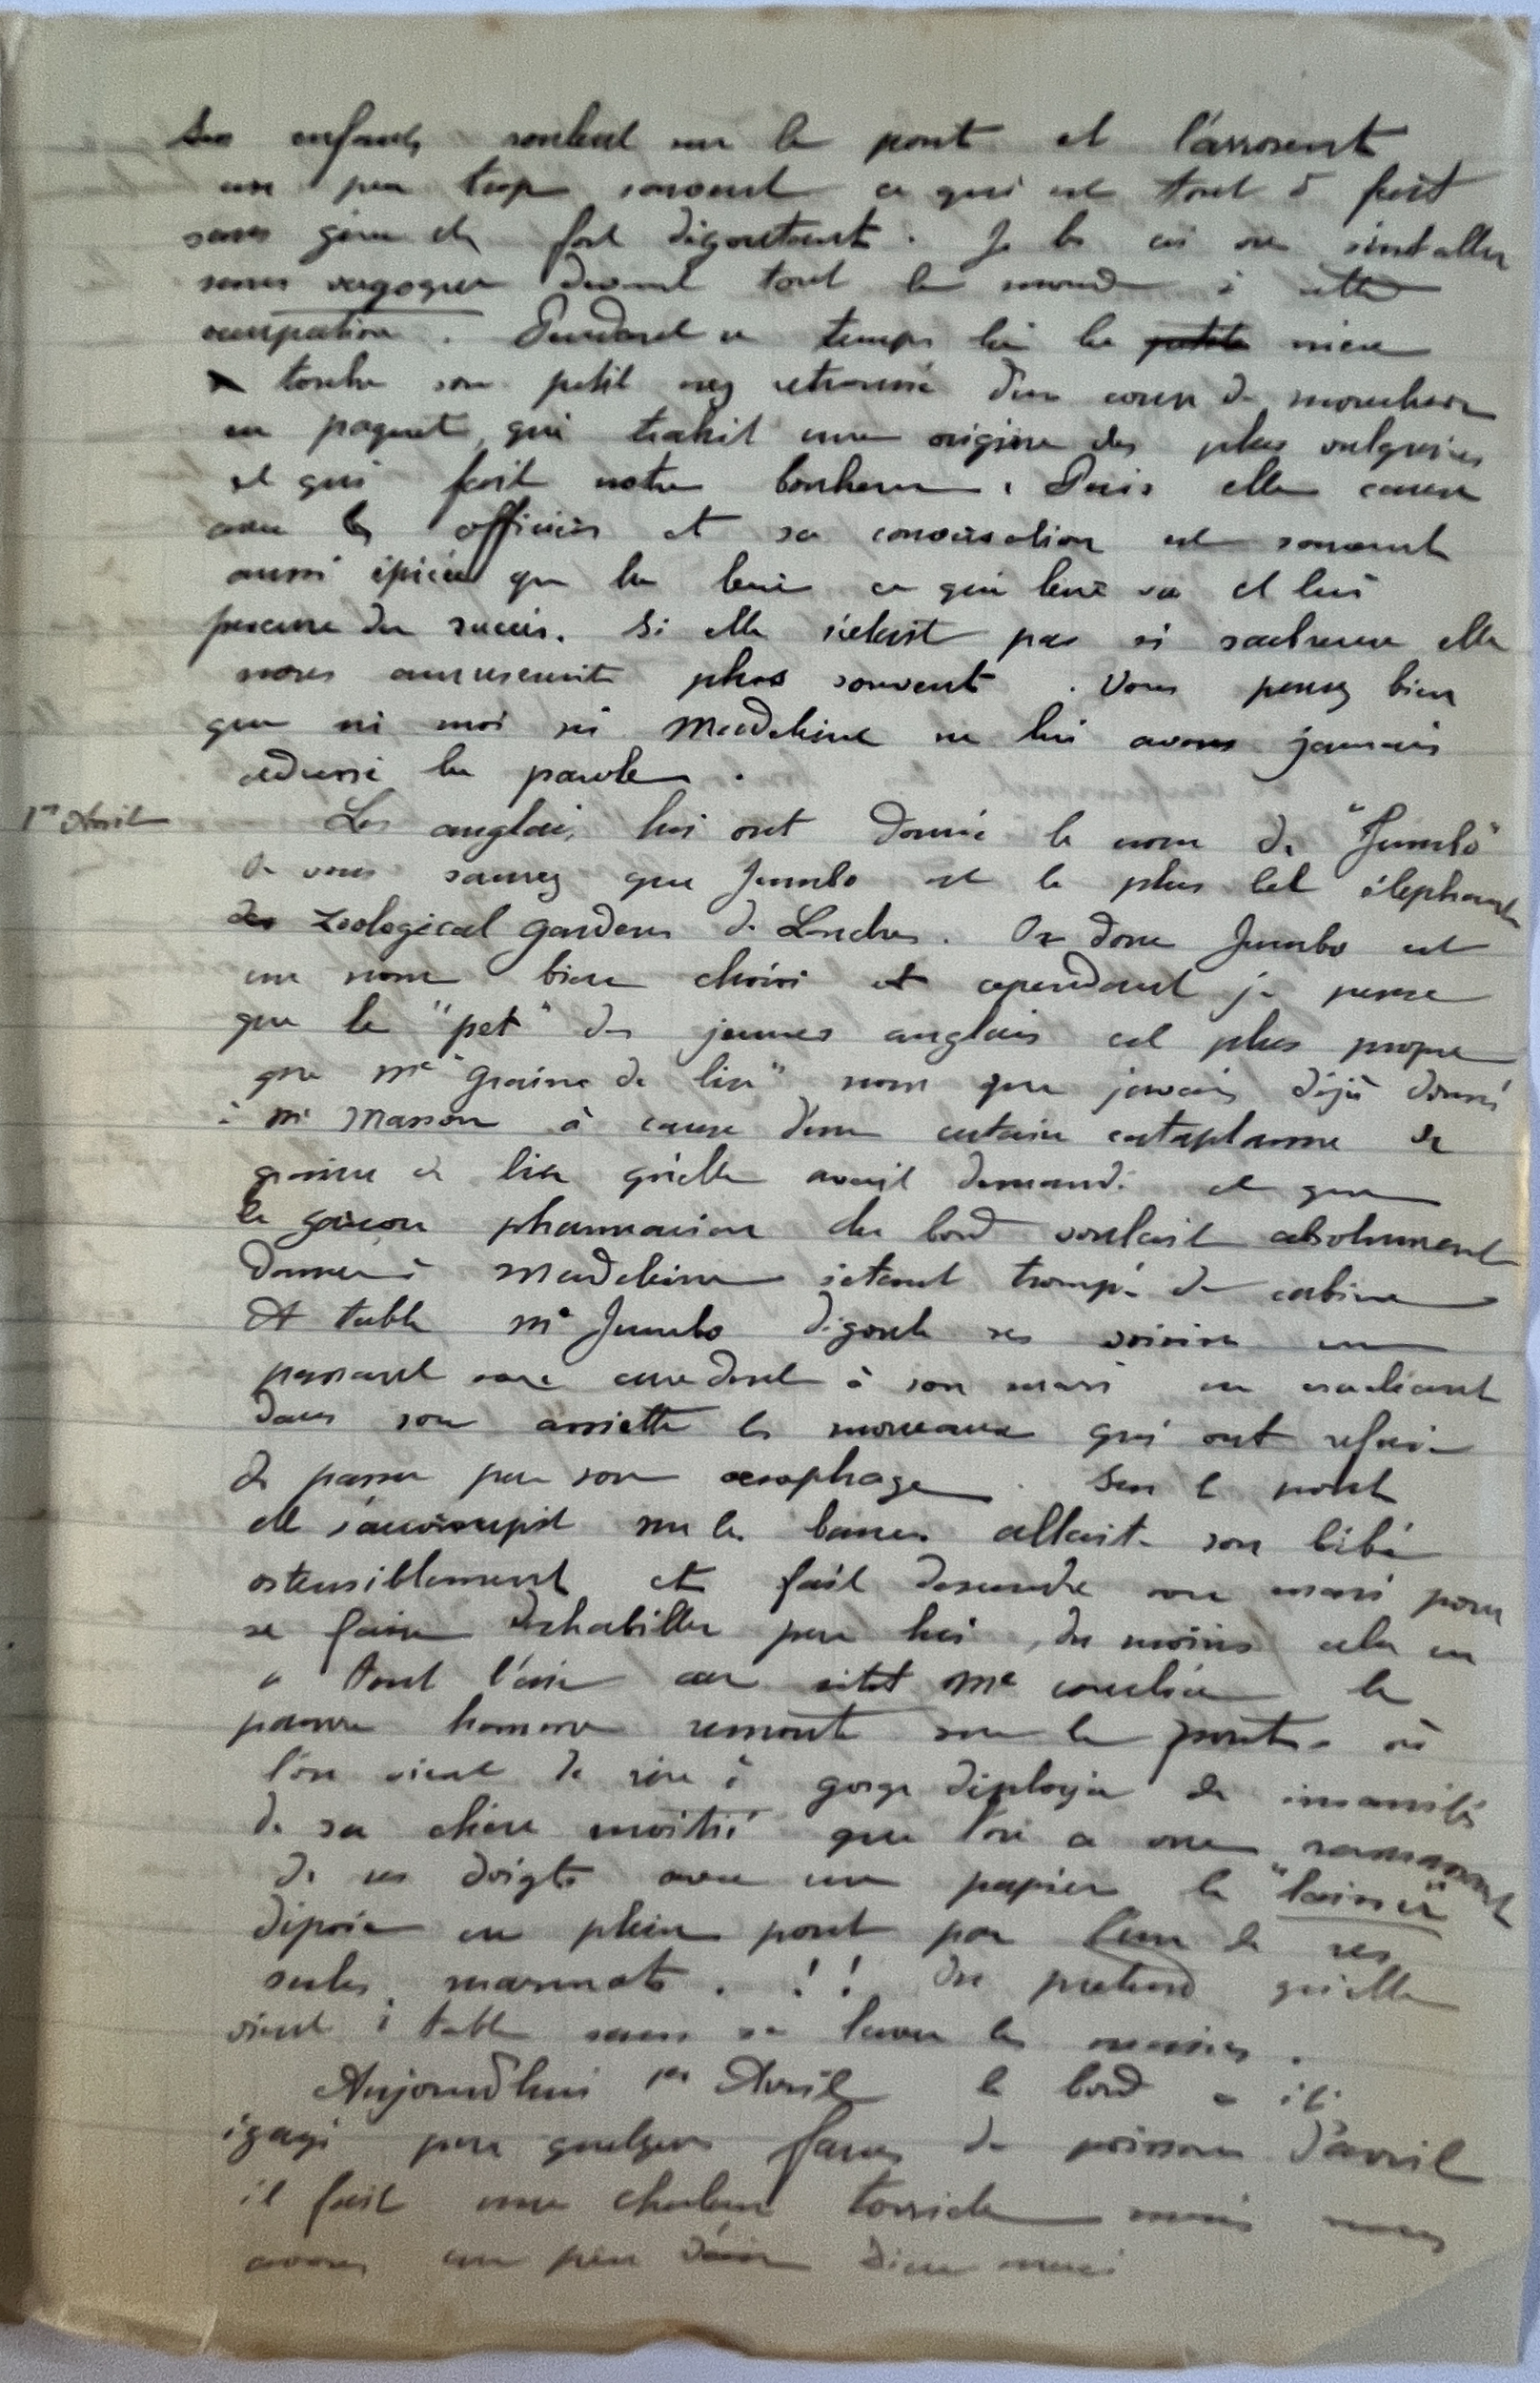 Ses enfants roulent sur le pont et l'arrosent
un peu trop souvent ce qui est tout à fait
sans gêne et fort dégoutant. Je les ai vu s'installer
sans vergogne devant tout le monde à cette
occupation. Pendant ce temps là la mère
torche son petit nez retroussé d'un coup de mouchoir
en paquet, qui trahit une origine des plus vulgaires
et qui fait notre bonheur. Puis elle cause
avec les officiers et sa conversation est souvent
aussi épicée que la leur ce qui leur va et lui
procure du succès. Si elle n'était pas si
elle
nous amuserait plus souvent. Vous pensez bien
que ni moi ni Madeleine ne lui avons jamais
adressé la parole.
1er Avril
Les anglais lui ont donné le nom de "Jumbo"
vous saurez que Jumbo est le plus bel éléphant
des Zoological Gardens de Londres. Or donc Jumbo est
un nom bien choisi et cependant je pense
que le "pet" des jeunes anglais est plus propre
que Me "Graine de lin" nom que j'avais déjà donné
à Me Masson à cause d'un certain cataplasme de
graine de lin qu'elle avait demandé et que
le garçon pharmacien du bord voulait absolument
donner à Madeleine s'étant trompé de cabine
A table Me Jumbo dégoute ses voisins en
passant son à son mari en crachant
dans son assiette les morceaux qui ont refusé
de passer par son œsophage. Sur le pont
elle s'accroupit sur les bancs allaite son bébé
ostensiblement et fait descendre son mari pour
se faire déshabiller par lui, du moins cela en
a tout l'air car sitôt Me couchée le
pauvre homme remonte sur le pont où
l'on vient de rire à gorge déployée des insanités
de sa chère moitié que l'on a vue ramassant
de ses doigts avec un papier le "laisser"
déposé en plein pont par l'un de ses
sales marmots. !! On prétend qu'elle
vient à table sans se laver les mains.
Aujourd'hui 1er Avril le bord a été
égayé par quelques farces de poisson d'avril
il fait une chaleur torride mais nous
avons un peu d'air Dieu merci